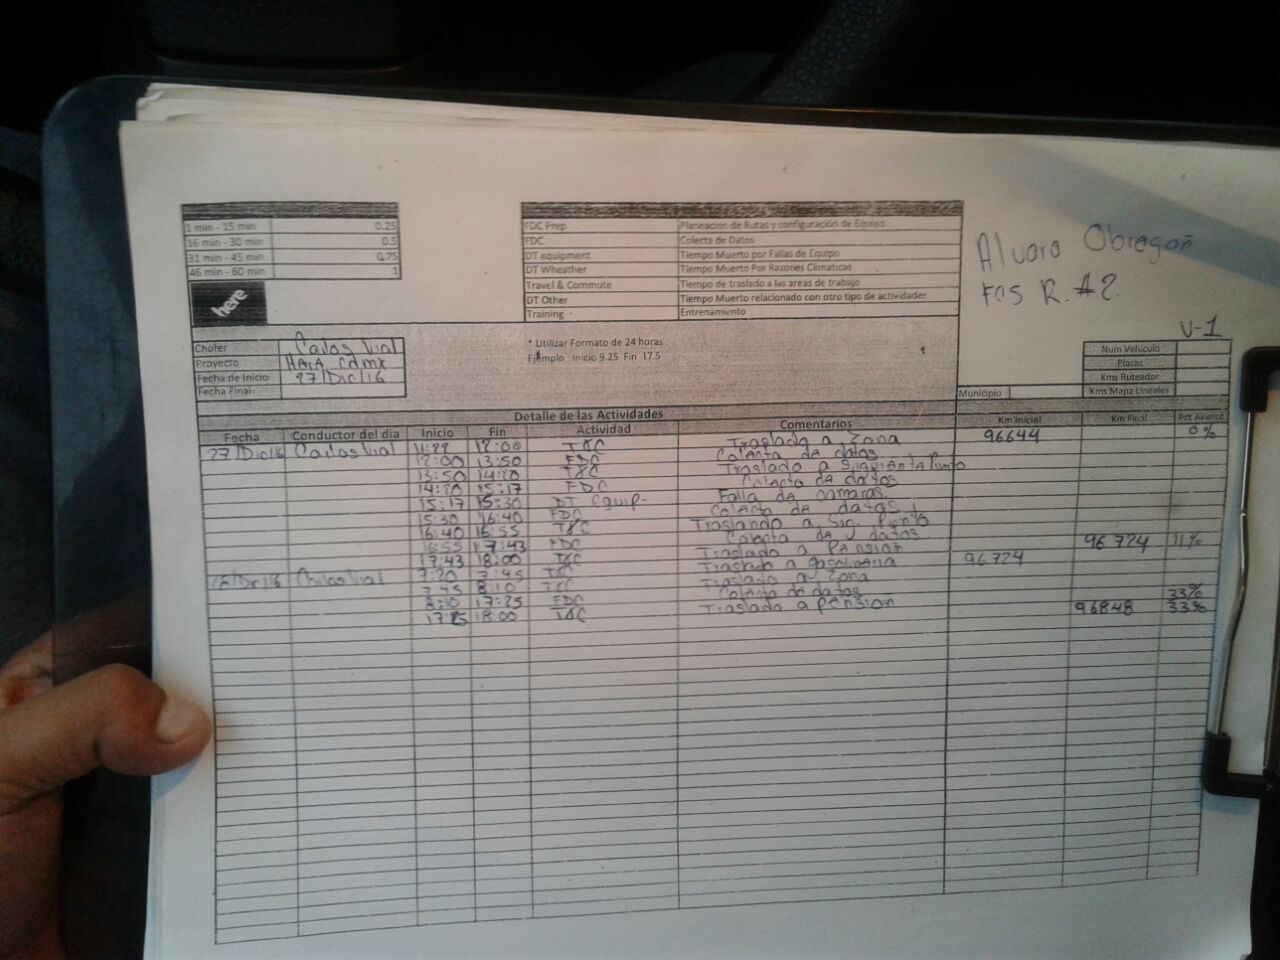 1 min - 15 min 0.25
16 min - 30 min 0.5
31 min - 45 min 0.75
46 min - 60 min 1
here
FDC Prep Planeacion de Rutas y configuración de Equipo
FDC Colecta de Datos
DT equipment Tiempo Muerto por Fallas de Equipo
DT Wheather Tiempo Muerto Por Razones Climaticas
Travel & Commute Tiempo de traslado a las areas de trabajo
DT Other Tiempo Muerto relacionado con otro tipo de actividades
Training Entrenamiento
Alvaro Obregon
FCS R. #2.
V-1
Chofer Carlos Vial
Proyecto HERE CDMX
Fecha de Inicio 27/Dic/16
Fecha Final
* Utilizar Formato de 24 horas
Ejemplo : Inicio 9.25 Fin 17.5
Num Vehiculo
Placas
Kms Ruteador
Municipio Kms Mapa Lineales
Detalle de las Actividades
Fecha Conductor del dia Inicio Fin Actividad Comentarios Km Inicial Km Final Pct Avance
27/Dic/16 Carlos Vial 12:00 T&C Traslado a Zona 96644 0%
12:00 13:50 FDC Colecta de datos
13:50 14:20 T&C Traslado a Siguiente Punto
14:20 15:17 FDC Colecta de datos
15:17 15:30 DT Equip- Falla de camaras.
15:30 16:40 FDC Colecta de datos
16:40 16:55 T&C Traslando a Sig. Punto
16:55 17:43 FDC Colecta de datos 96724 11%
17:43 18:00 T&C Traslado a Pension
Carlos Vial 7:20 7:45 T&C Traslado a gasolineria 96724
7:45 8:10 T&C Traslado a Zona
8:10 17:25 FDC Colecta de datos 33%
17:25 18:00 T&C Traslado a pension 96848 33%